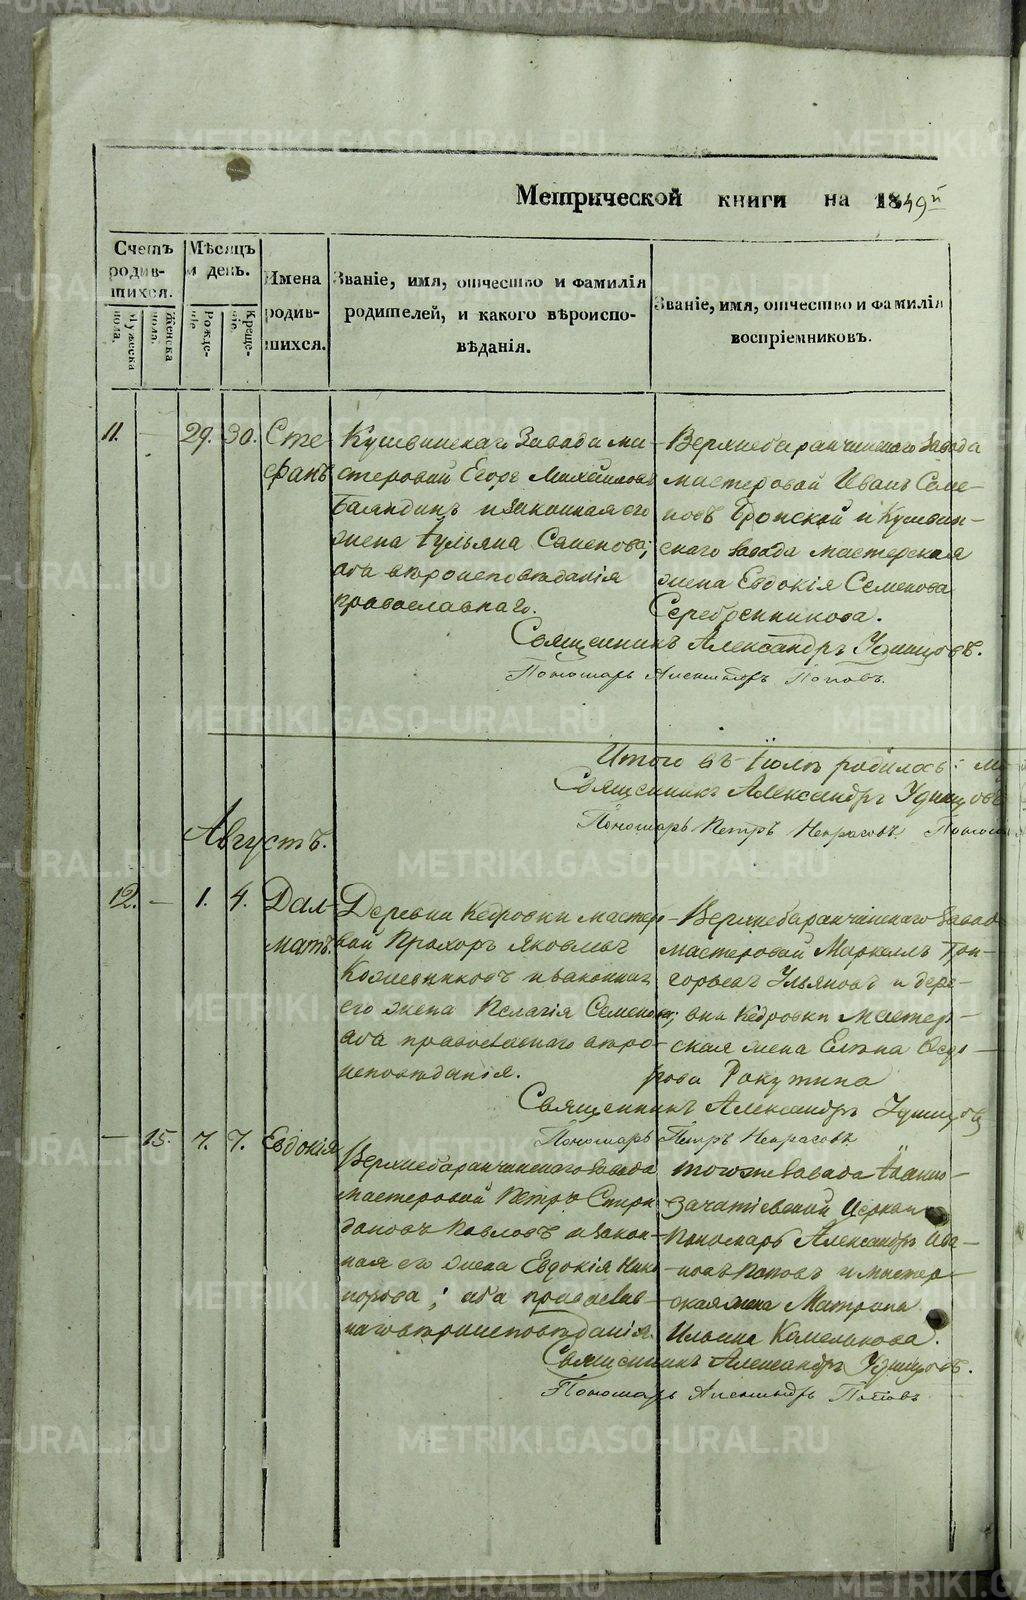 Метрической книги на 1849й
Счетъ родившихся.
Мѣсяцъ и день.
Имена родившихся.
Званіе, имя, отчество и фамилія родителей, и какого вѣроисповѣданія.
Званіе, имя, отчество и фамилія воспріемниковъ.
Мужеска пола.
Женска пола.
Рожденіе.
Крещеніе.
11. — 29. 30. Сте-
фанъ
Кушвинскаго Завода ма-
стеровой Егоръ Михайловъ
Баляндинъ и законная его
жена Іульяна Семенова;
оба вѣроисповѣданія
православнаго.
Верхнебаранчинскаго Завода
мастеровой Иванъ Семе-
новъ и Кушвин-
скаго завода мастерская
жена Евдокія Семенова
Серебренникова.
Священникъ Александръ Удинцовъ.
Пономарь Александръ Поповъ.
Итого въ Іюлѣ родилось:
Священникъ Александръ Удинцовъ
Пономарь Петръ Некрасовъ
Августъ.
12. — 1. 4. Дал-
матъ.
Деревни Кедровки мастер-
вой Прохоръ Яковлевъ
Кожевниковъ и законная
его жена Пелагія Семенова;
оба православнаго вѣро-
исповѣданія.
Верхнебаранчинскаго Завод
мастеровой Маркеллъ Гри-
горьевъ Ульяновъ и дере-
вни Кедровки мастер-
ская жена Елена Ѳедо-
рова Ракутина
Священникъ Александръ Удинцовъ
Пономарь Петръ Некрасовъ
— 15. 7. 7. Евдокія
Верхнебаранчинскаго Завода
мастеровой Петръ Спири-
доновъ Павловъ и закон-
ная его жена Евдокія Ники-
форова; оба православ-
наго вѣроисповѣданія.
тогоже Завода Іоанно-
Зачатіевской Церкви
Пономарь Александръ Ива-
новъ Поповъ и мастер-
ская жена Матрона
Ильина Камелькова.
Священникъ Александръ Удинцовъ.
Пономарь Александръ Поповъ
METRIKI.GASO-URAL.RU